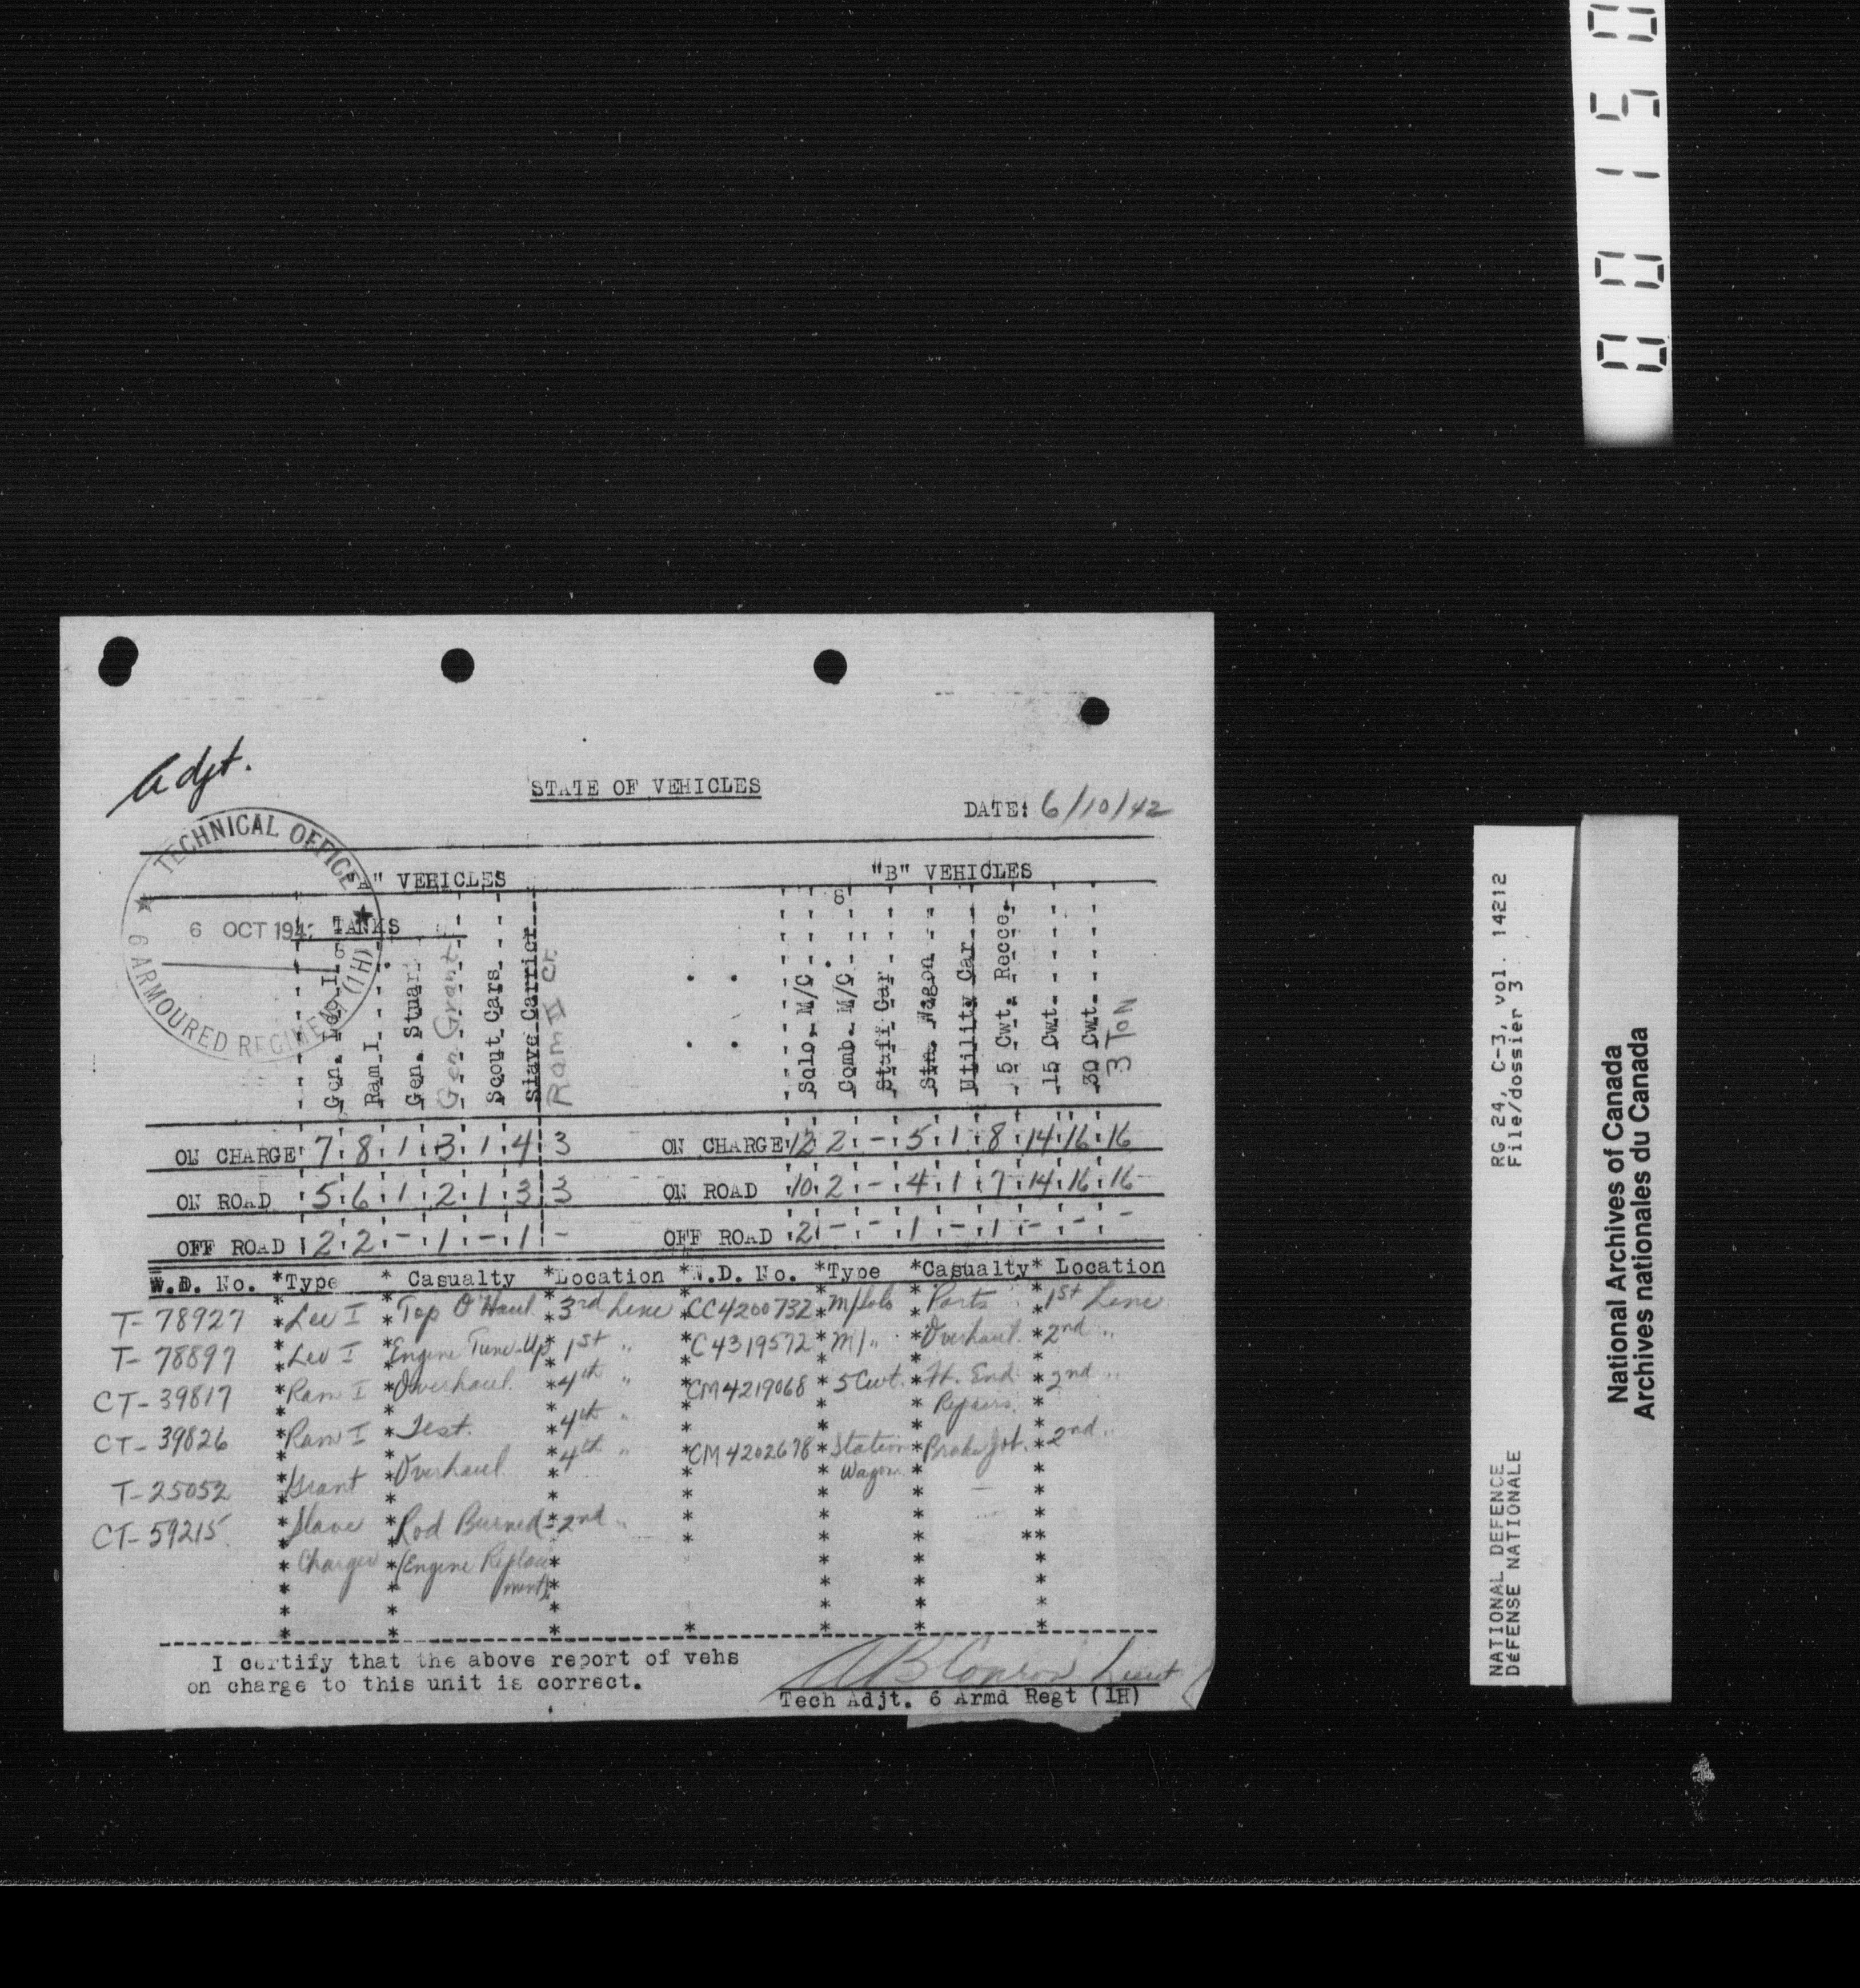 00150
Adjt.
STATE OF VEHICLES
DATE: 6/10/42
TECHNICAL OFFICE
6 OCT 194
6 ARMOURED REGIMENT (1H)
"A" VEHICLES "B" VEHICLES
TANKS
Gen. Lee I
Ram I
Gen. Stuart
Gen Grant
Scout Cars
Slave Carrier
Ram II Cr.
Solo, M/C
Comb. M/C
Staff Car
Stn. Wagon
Utility Car
5 Cwt. Recce.
15 Cwt.
30 Cwt.
3 TON
ON CHARGE 7 8 1 3 1 4 3 ON CHARGE 12 2 - 5 1 8 14 16 16
ON ROAD 5 6 1 2 1 3 3 ON ROAD 10 2 - 4 1 7 14 16 16
OFF ROAD 2 2 - 1 - 1 - OFF ROAD 2 - - 1 - 1 - - -
W.D. No. *Type * Casualty *Location *W.D. No. *Type *Casualty* Location
T-78927 Lee I Top O'Haul 3rd Line CC4200732 M/Solo Parts 1st Line
T-78897 Lee I Engine Tune-Up 1st " C4319572 M/ " Overhaul. 2nd "
CT-39817 Ram I Overhaul 4th " CM4219068 5 Cwt. Ft. End 2nd "
Repairs.
CT-39826 Ram I Test. 4th "
T-25052 Grant Overhaul 4th " CM4202678 Station Brake Jst. 2nd "
Wagon
CT-59215 Slave Rod Burned- 2nd "
Charger (Engine Replace
ment)
I certify that the above report of vehs
on charge to this unit is correct.
Lieut
Tech Adjt. 6 Armd Regt (1H)
NATIONAL DEFENCE RG 24, C-3, vol. 14212
DÉFENSE NATIONALE File/dossier 3
National Archives of Canada
Archives nationales du Canada